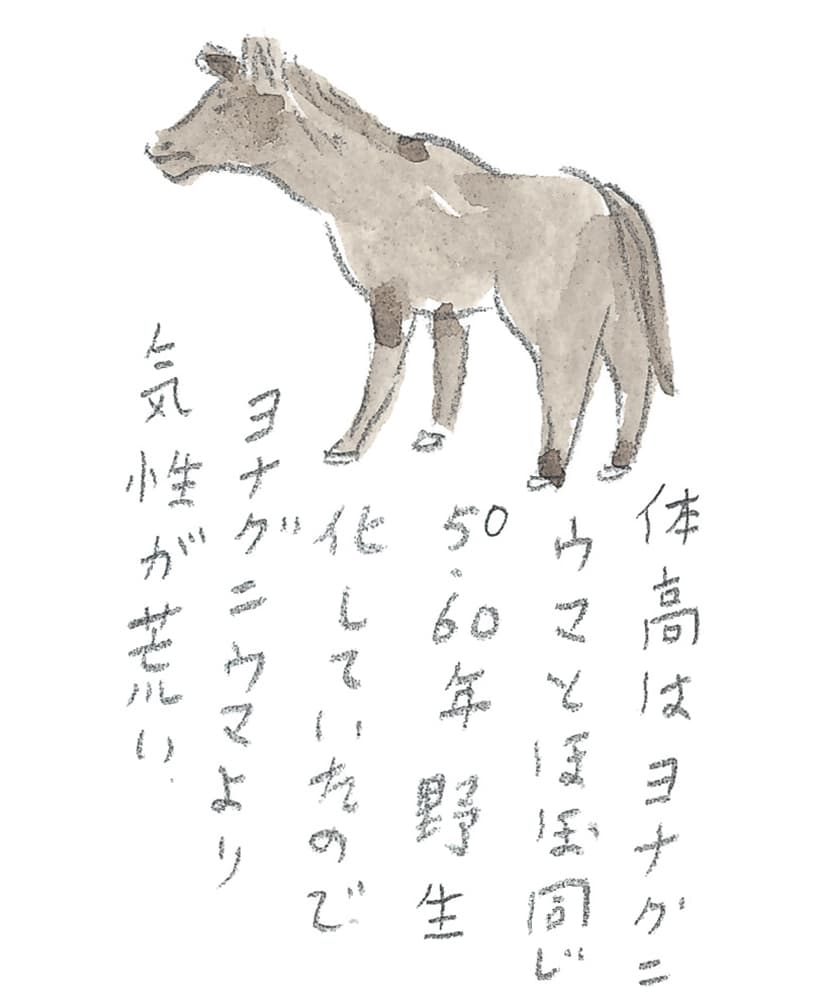 体高はヨナグニ
ウマとほぼ同じ
50.60年野生
化していたので
ヨナグニウマより
気性が荒い.